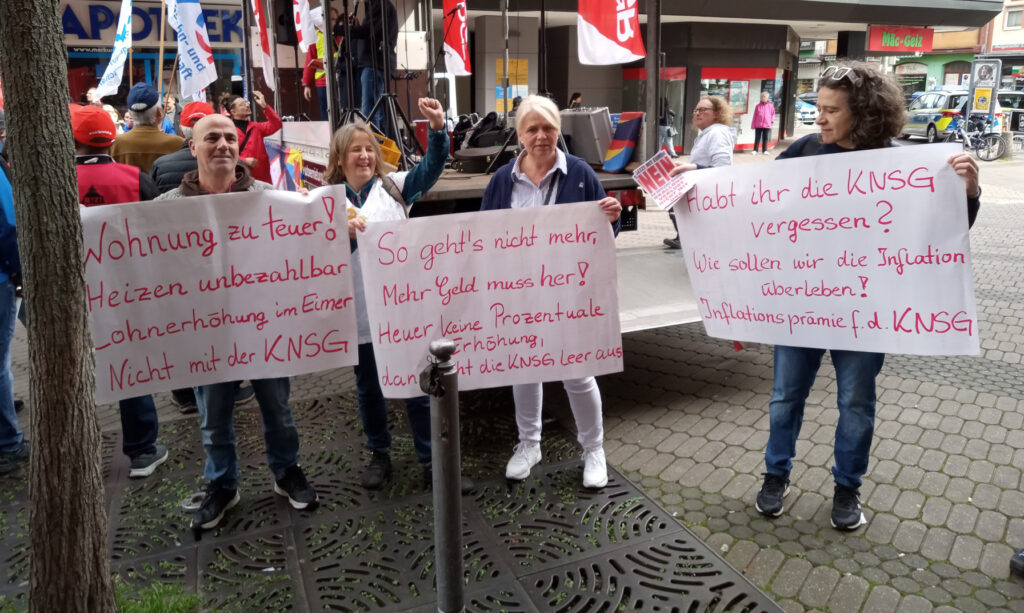 APOTHE
Mäc-Geiz
Wohnung zu teuer!
Heizen unbezahlbar
Lohnerhöhung im Eimer
Nicht mit der KNSG
So geht's nicht mehr,
Mehr Geld muss her!
Heuer keine Prozentuale
Erhöhung,
die KNSG leer aus
Habt ihr die KNSG
vergessen?
Wie sollen wir die Inflation
überleben?
Inflationsprämie f. d. KNSG